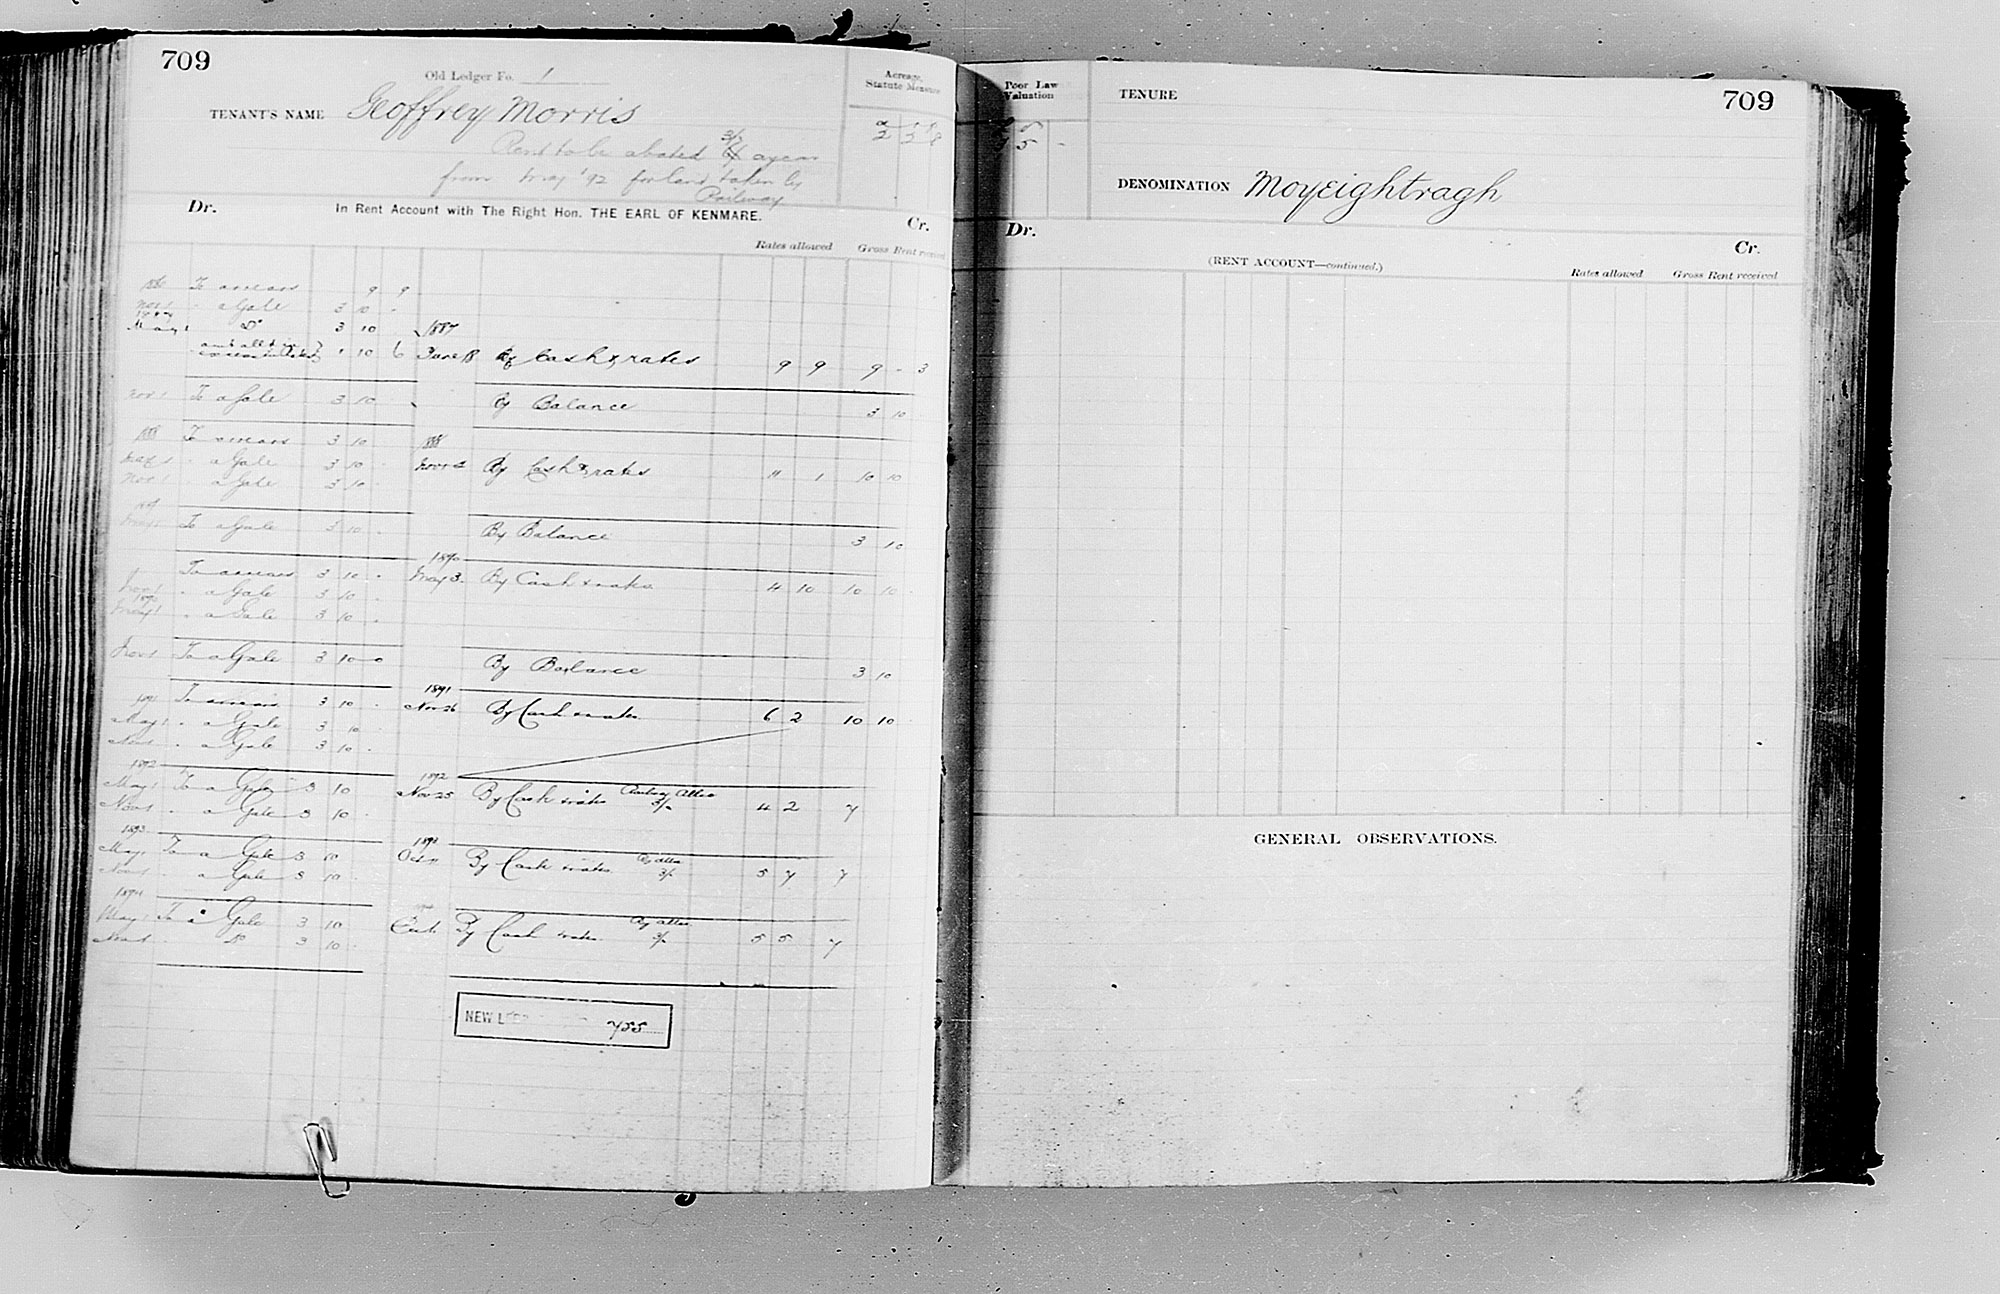 709
Old Ledger Fo. 1
TENANT'S NAME Geoffrey Morris
Acreage, Statute Measure
Rent to be abated 3/2 a year
from May '92 for land taken by
Railway
Dr. In Rent Account with The Right Hon. THE EARL OF KENMARE. Cr.
Rates allowed Gross Rent received
To arrears 9 9
Nov 1 " a Gale 3 10 -
May 1 Do 3 10 1887
1 10 6 June 18 By Cash & rates 9 9 9 - 3
Nov 1 To a Gale 3 10 By Balance 3 10
1888 To arrears 3 10 1888
May 1 " a Gale 3 10 Nov By Cash & rates 11 1 10 10
Nov 1 " a Gale 3 10
May 1 To a Gale 3 10 By Balance 3 10
1890
To arrears 3 10 May 3 By Cash & rates 4 10 10 10
Nov 1 " a Gale 3 10
1890
May 1 " a Gale 3 10
Nov 1 To a Gale 3 10 0 By Balance 3 10
1891
1891 To arrears 3 10 Nov 26 By Cash & rates 6 2 10 10
May 1 " a Gale 3 10
Nov 1 " a Gale 3 10
1892 1892
May 1 To a Gale 3 10 Nov 25 By Cash & rates Railway Allce 3/2 4 2 7
Nov 1 " a Gale 3 10
1893 1893
May 1 To a Gale 3 10 Oct 11 By Cash & rates Ry allce 3/2 5 7 7
Nov 1 a Gale 3 10
1894
May 1 To a Gale 3 10 Oct By Cash & rates Ry allce 3/2 5 5 7
Nov 1 " Do 3 10
NEW LEDGER 755
Poor Law Valuation
TENURE
709
DENOMINATION Moyeightragh
Dr. Cr.
(RENT ACCOUNT—continued.)
Rates allowed Gross Rent received
GENERAL OBSERVATIONS.